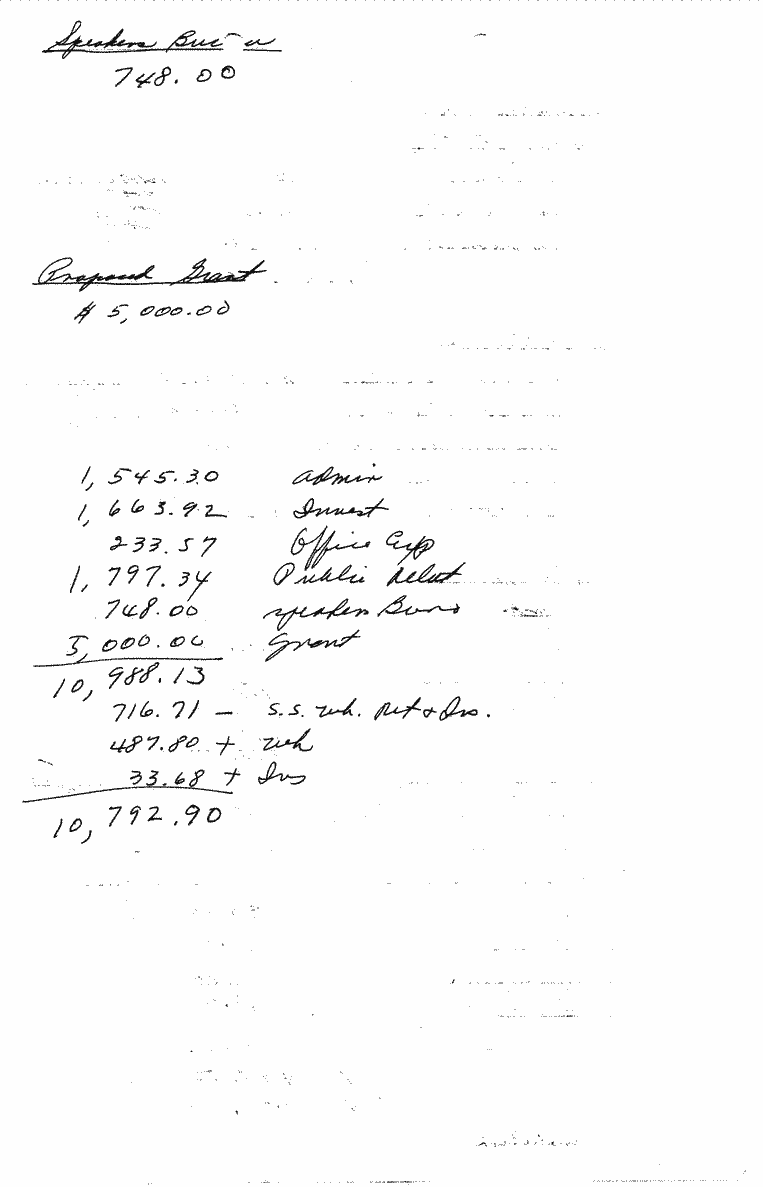 Speakers Bureau
748.00
Proposed Grant
$ 5,000.00
1,545.30 Admin
1,663.92 Invest
233.57 Office Exp
1,797.34 Public Relat
748.00 Speakers Bureau
5,000.00 Grant
10,988.13
716.71 - S.S. Wh. Ret & Ins.
487.80 + Wh
33.68 + Ins
10,792.90